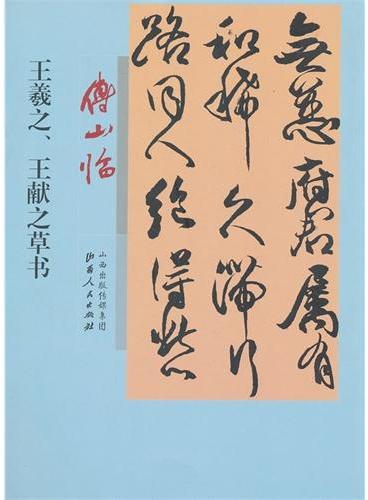 無恙府君属有
和 久滞行
路同人絶得
傅山临
王羲之、王献之草书
山西出版传媒集团
山西人民出版社